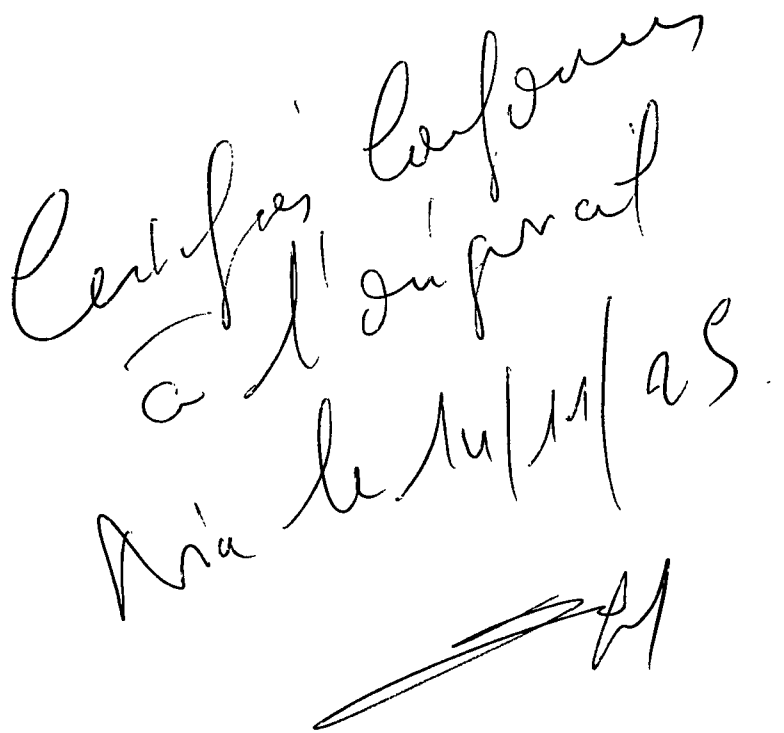 Certifiés Conformes
à l'original
Nia le 14/11/25